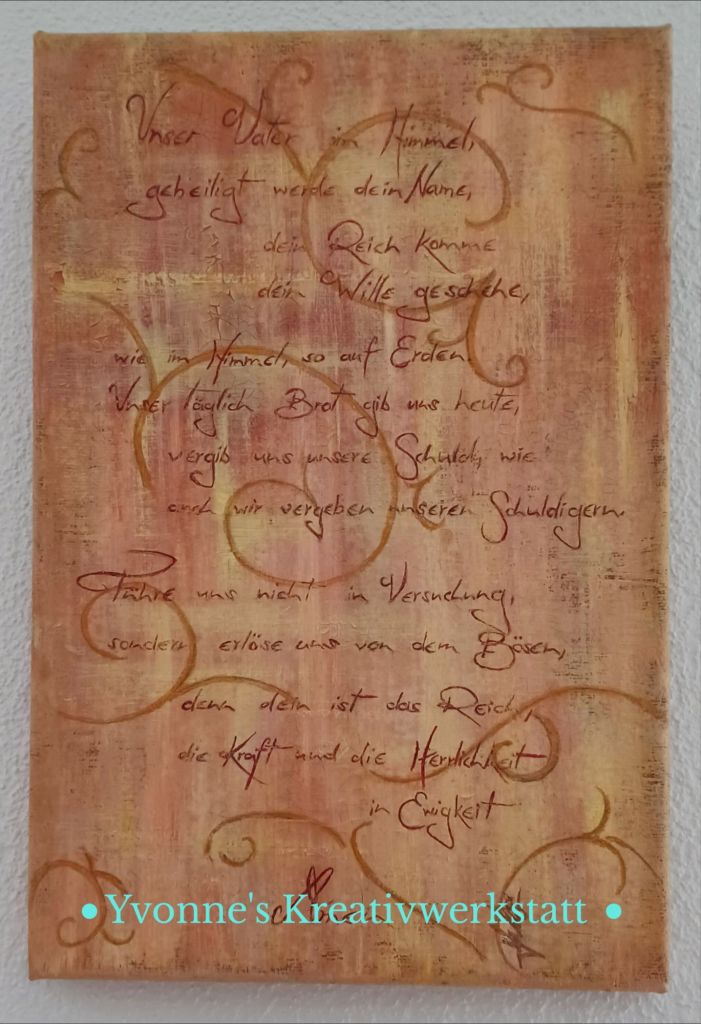 Unser Vater im Himmel,
geheiligt werde dein Name,
dein Reich komme
dein Wille geschehe,
wie im Himmel, so auf Erden.
Unser täglich Brot gib uns heute,
vergib uns unsere Schuld, wie
auch wir vergeben unseren Schuldigern.
Führe uns nicht in Versuchung,
sondern erlöse uns von dem Bösen,
denn dein ist das Reich,
die Kraft und die Herrlichkeit
in Ewigkeit
•Yvonne's Kreativwerkstatt •